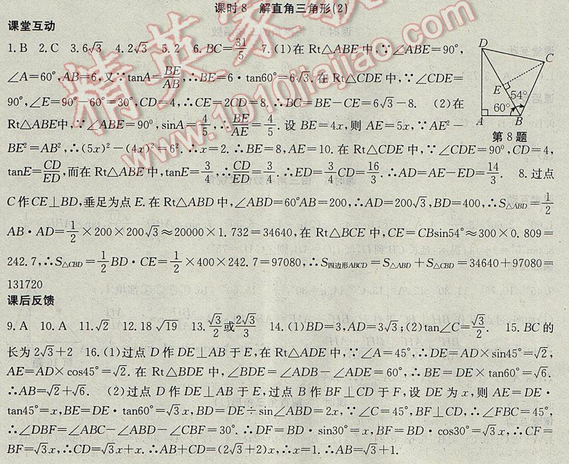 课时8 解直角三角形(2)
课堂互动
1.B 2.C 3.6√3 4.2√3 5.2 6.BC=31/5 7.(1)在Rt△ABE中,∵∠ABE=90°,
∠A=60°,AB=6,又∵tanA=BE/AB,∴BE=6·tan60°=6√3.在Rt△CDE中,∵∠CDE=
90°,∠E=90°-60°=30°,CD=4,∴CE=2CD=8.∴BC=BE-CE=6√3-8. (2)在
Rt△ABE中,∵∠ABE=90°,sinA=4/5,∴BE/AE=4/5.设BE=4x,则AE=5x,∵AE²-
BE²=AB²,∴(5x)²-(4x)²=6².∴x=2.∴BE=8,AE=10.在Rt△CDE中,∵∠CDE=90°,CD=4,
tanE=CD/ED,而在Rt△ABE中,tanE=3/4,∴CD/ED=3/4.∴ED=4/3CD=16/3.∴AD=AE-ED=14/3. 8.过点
C作CE⊥BD,垂足为点E.在Rt△ABD中,∠ABD=60°AB=200,∴AD=200√3,BD=400,∴S△ABD=1/2
AB·AD=1/2×200×200√3≈20000×1.732=34640,在Rt△BCE中,CE=CBsin54°≈300×0.809=
242.7,∴S△CBD=1/2BD·CE=1/2×400×242.7=97080,∴S四边形ABCD=S△ABD+S△CBD=34640+97080=
131720
D
C
E
54°
60°
A
B
第8题
课后反馈
9.A 10.A 11.√2 12.18√19 13.√3/2或2√3/3 14.(1)BD=3,AD=3√3;(2)tan∠C=√3/2. 15.BC的
长为2√3+2 16.(1)过点D作DE⊥AB于E,在Rt△ADE中,∵∠A=45°,∴DE=AD×sin45°=√2,
AE=AD×cos45°=√2.在Rt△BDE中,∠BDE=∠ADB-∠ADE=60°,∴BE=DE×tan60°=√6.
∴AB=√2+√6. (2)过点D作DE⊥AB于E,过点B作BF⊥CD于F,设DE为x,则AE=DE·
tan45°=x,BE=DE·tan60°=√3x,BD=DE÷sin∠ABD=2x,∵∠C=45°,BF⊥CD,∴∠FBC=45°,
∴∠DBF=∠ABC-∠ABD-∠CBF=30°.∴DF=BD·sin30°=x,BF=BD·cos30°=√3x,∴CF=
BF=√3x,∴CD=√3x+x.∴AB+CD=(2√3+2)x,∴x=1.∴AB=√3+1.
精英家教网
www.1010jiajiao.com